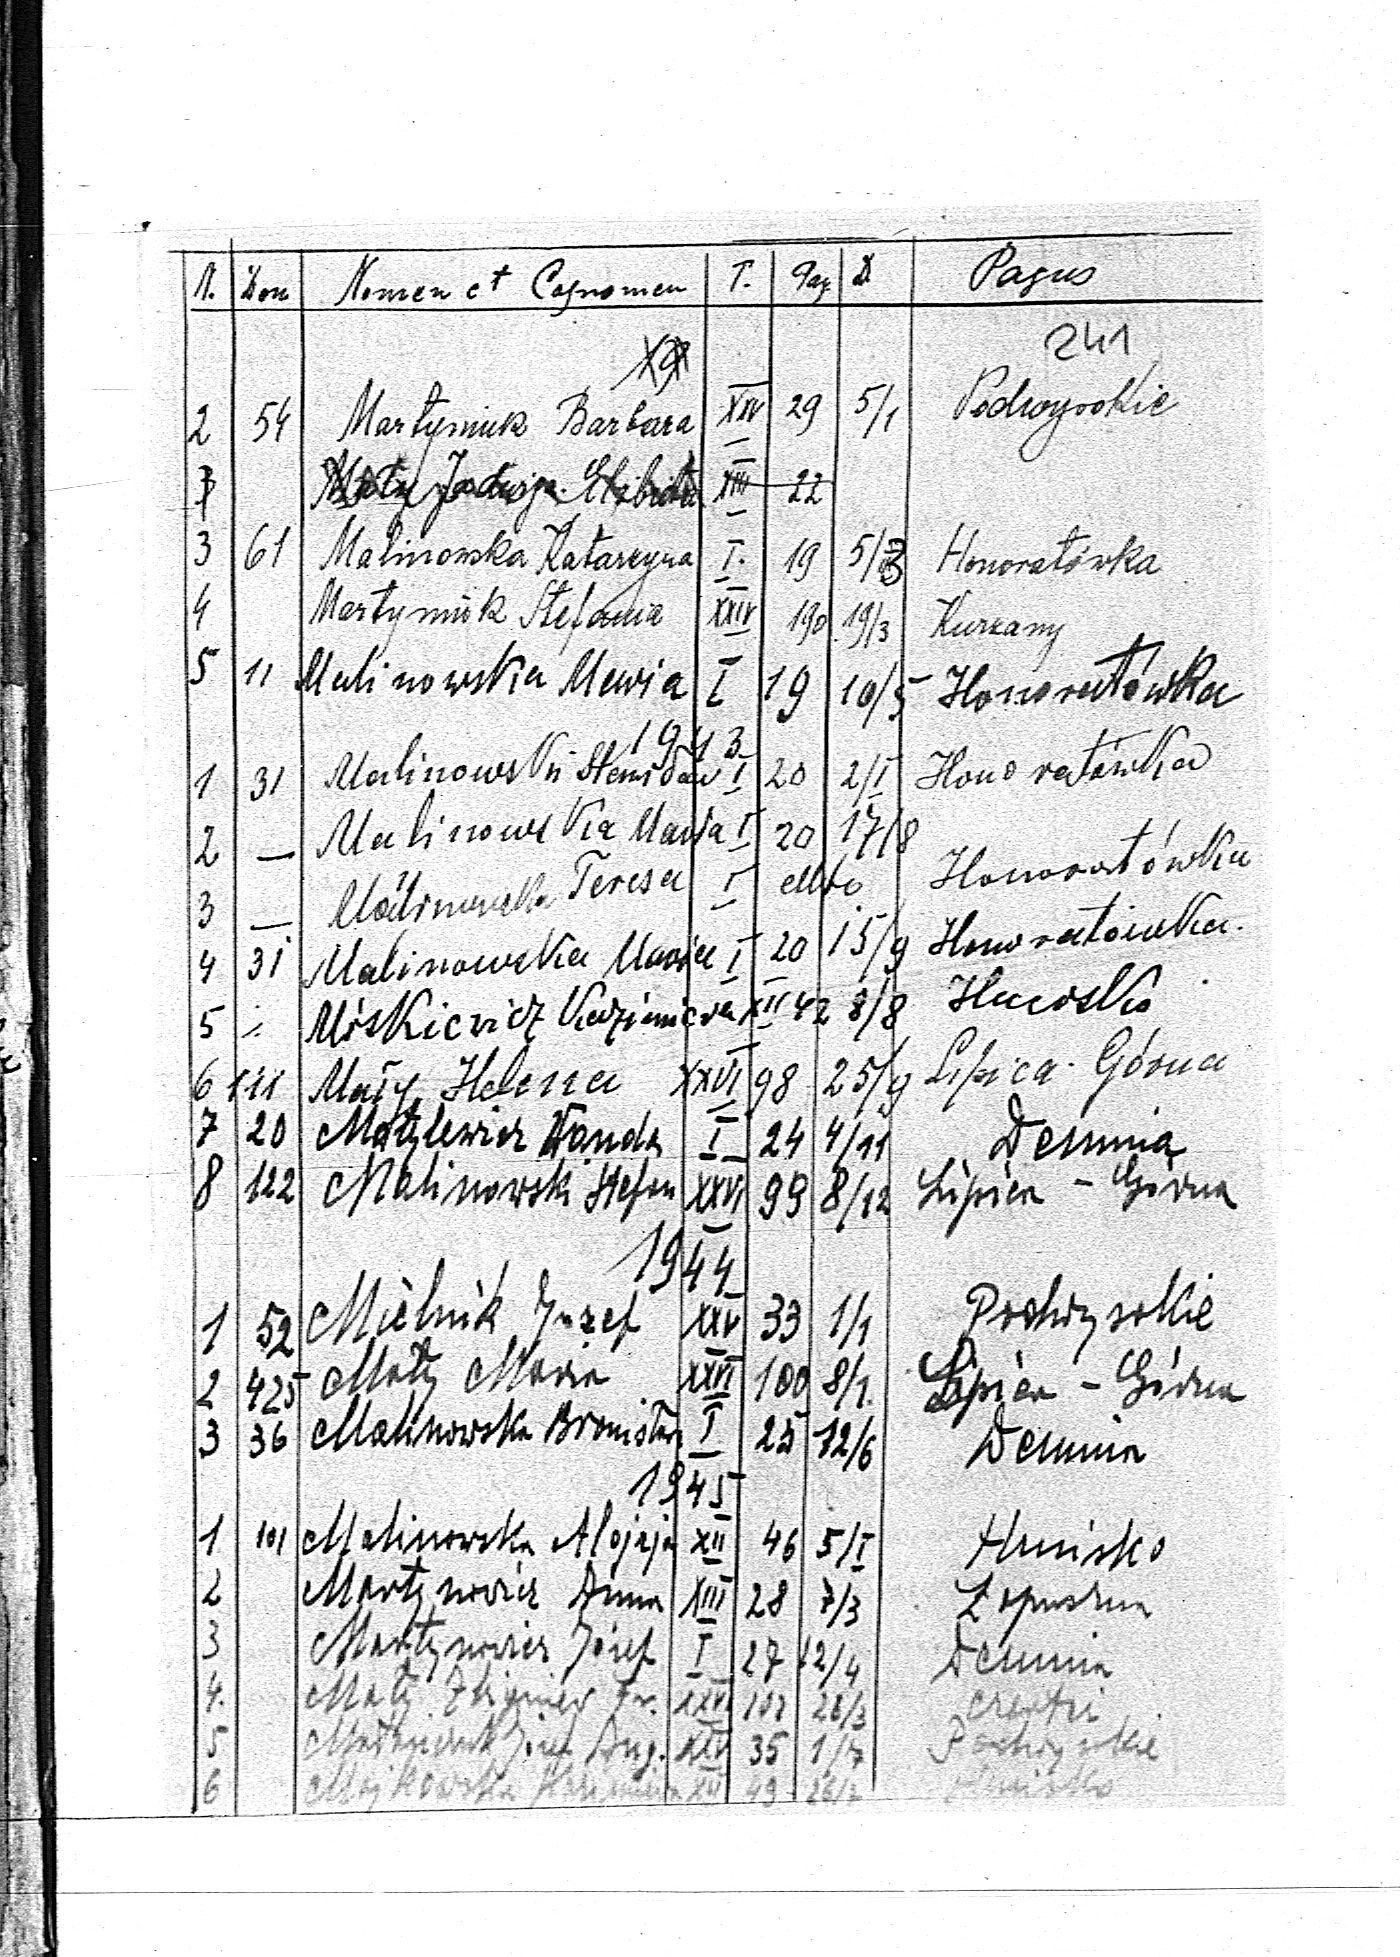 N. Dom Nomen et Cognomen T. Pag D. Pagus
241
2 54 Martyniuk Barbara XXV 29 5/1 Podwysokie
3 Mały Jadwiga Elżbieta XIII 22
3 61 Malinowska Katarzyna I. 19 5/3 Honoratówka
4 Martyniuk Stefania XXIV 190 19/3 Kurzany
5 11 Malinowska Maria I 19 10/5 Honoratówka
1943
1 31 Malinowski Stanisław I 20 2/I Honoratówka
2 — Malinowska Maria I 20 17/8
3 — Malinowska Teresa I Honoratówka
4 31 Malinowska Maria I 20 15/9 Honoratówka.
5 Miśkiewicz Kazimiera XII 42 8/8 Hucisko
6 111 Mały Helena XXVI 98 25/9 Lipica Górna
7 20 Matylewicz Wanda I 24 4/11 Demnia
8 122 Malinowski Stefan XXVI 99 8/12 Lipica - Górna
1944
1 52 Mielnik Józef XXV 33 1/1 Podwysokie
2 425 Mały Maria XXVI 100 8/1. Lipica - Górna
3 36 Malinowska Bronisław I 25 12/6 Demnia
1945
1 101 Malinowska Alojzja XII 46 5/I Hucisko
2 Martynowicz Anna XIII 28 7/3 Łopuszna
3 Martynowicz Józef I 27 12/4 Demnia
4. Mały Zbigniew Fr. XXVI 102 26/3
5 Józef Aug. XXV 35 1/7 Podwysokie
6 Majkowska XII 49 Hucisko